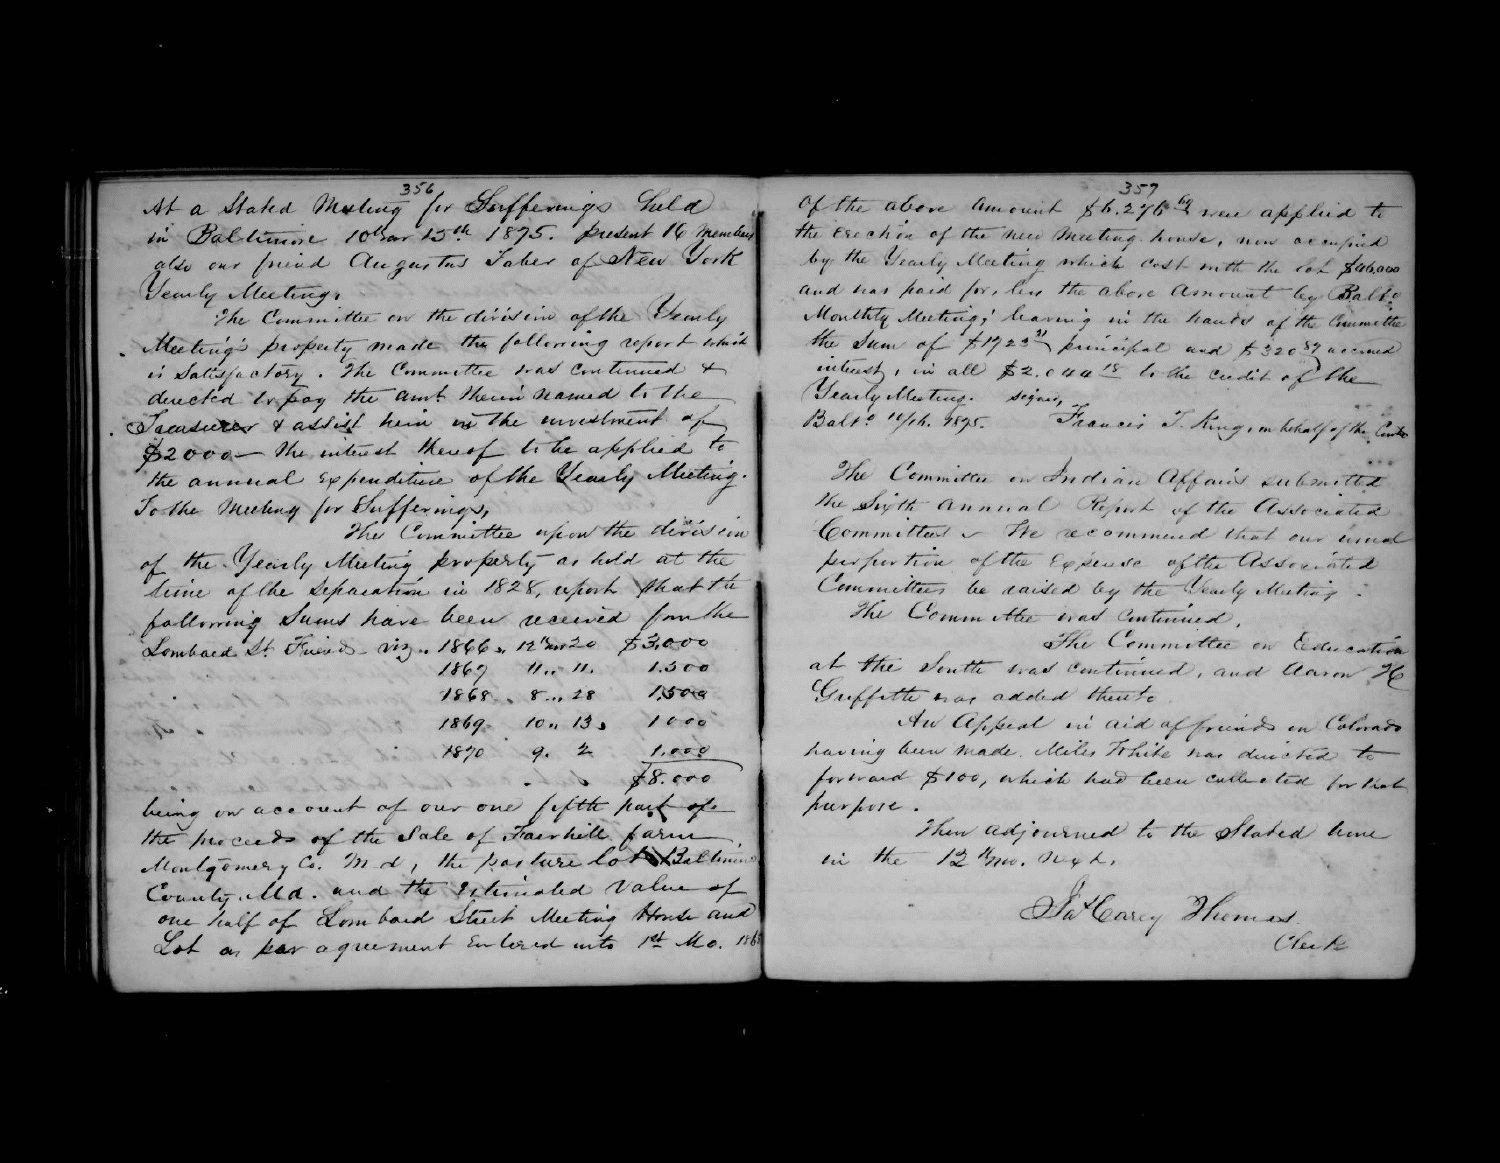 356
At a Stated Meeting for Sufferings held
in Baltimore 10th mo 15th 1875. present 16 members
also our friend Augustus Taber of New York
Yearly Meeting,
The Committee on the division of the Yearly
Meeting's property made the following report which
is Satisfactory. The Committee was continued &
directed to pay the amt. therein named to the
Treasurer & assist him in the investment of
$2000— the interest thereof to be applied to
the annual expenditure of the Yearly Meeting.
To the Meeting for Sufferings,
The Committee upon the division
of the Yearly Meeting property as held at the
time of the Separation in 1828, report that the
following Sums have been received from the
Lombard St. Friends viz. 1866, 12th mo 20 $3,000
1867 11 .. 11. 1.500
1868 . 8 .. 28 1,500
1869. 10 .. 13, 1000
1870 9. 2 1,000
$8.000
being on account of our one fifth part of
the proceeds of the Sale of Fairhill farm
Montgomery Co. Md, the pasture lot Baltimore
County, Md. and the estimated value of
one half of Lombard Street Meeting House and
Lot as per agreement entered into 1st Mo.
357
Of the above amount $6.276 69 were applied to
the erection of the new Meeting house, now occupied
by the Yearly Meeting which cost with the lot
and was paid for, less the above amount by Balto
Monthly Meeting; leaving in the hands of the Committee
the Sum of $1723 31 principal and $320 87 accrued
interest, in all $2.044 18 to the credit of the
Yearly Meeting. signed,
Balto. 1875. Francis T. King, on behalf of the Comtee
The Committee on Indian Affairs submitted
the Sixth annual Report of the Associated
Committees We recommend that our usual
proportion of the Expense of the Associated
Committees be raised by the Yearly Meeting.
The Committee was continued.
The Committee on Education
at the South was continued, and Aaron H
Griffith was added thereto
An Appeal in aid of friends in Colorado
having been made, Miles White was directed to
forward $100, which had been collected for that
purpose.
Then adjourned to the Stated time
in the 12th mo. next.
Jas Carey Thomas.
Clerk